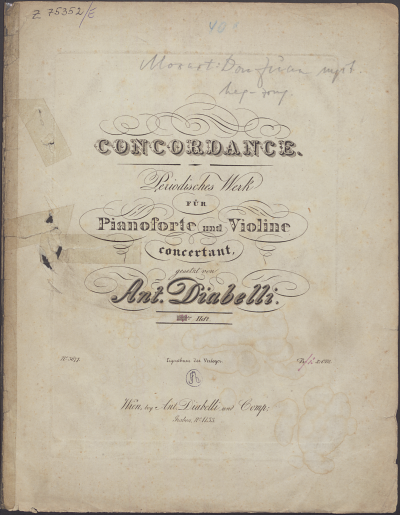 Z 75352/E
40
Mozart: Don Juan
CONCORDANCE.
Periodisches Werk
FÜR
Pianoforte und Violine
concertant,
gesetzt von
Ant. Diabelli.
Eigenthum der Verleger.
Wien, bey Ant. Diabelli und Comp.
Graben, No. 1133.